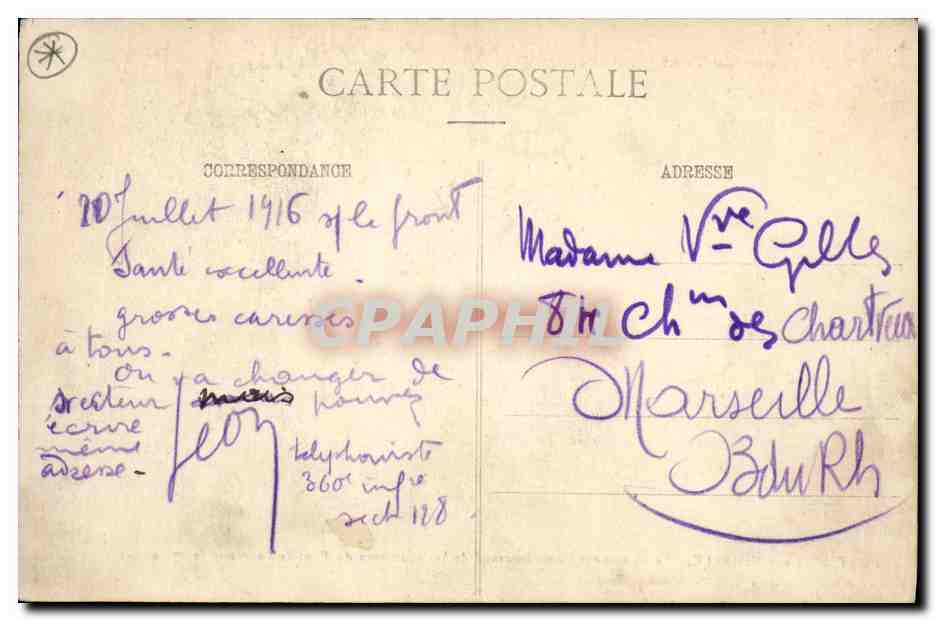 CARTE POSTALE
CORRESPONDANCE
ADRESSE
10 Juillet 1916 s/ le front
Santé excellente.
grosses caresses
à tous.
On va changer de
secteur mais pouvez
écrire
même
adresse -
Léon
téléphoniste
360e infie
sect 128
Madame Vve Gilles
Chin des Chartreux
Marseille
B du Rh
CPAPHIL